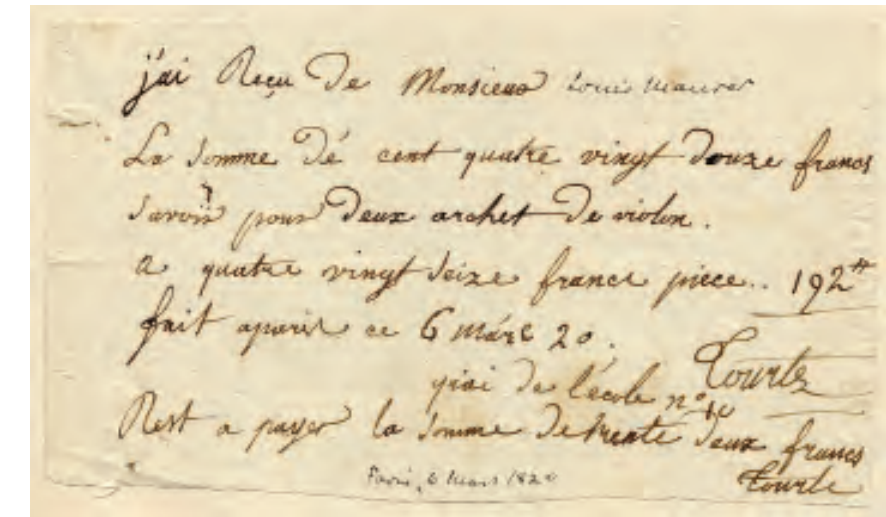 j'ai Reçu De Monsieur Louis Maurer
La somme Dé cent quatre vingt Douze francs
Savoir pour Deux archet De violon.
a quatre vingt Seize francs piece.. 192#
fait aparis ce 6 mars 20.
Tourte
qiai De l'école n° 10
Rest a payer la Somme De trente Deux francs
Tourte
Paris, 6 Mars 1820